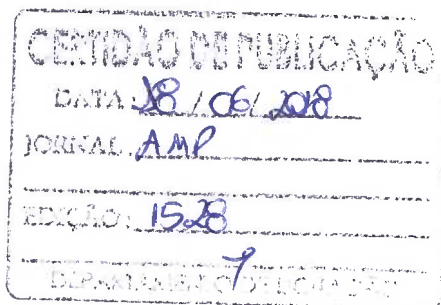 CERTIDÃO DE PUBLICAÇÃO
DATA: 28 / 06 / 2018
JORNAL: AMP
EDIÇÃO: 1528
7